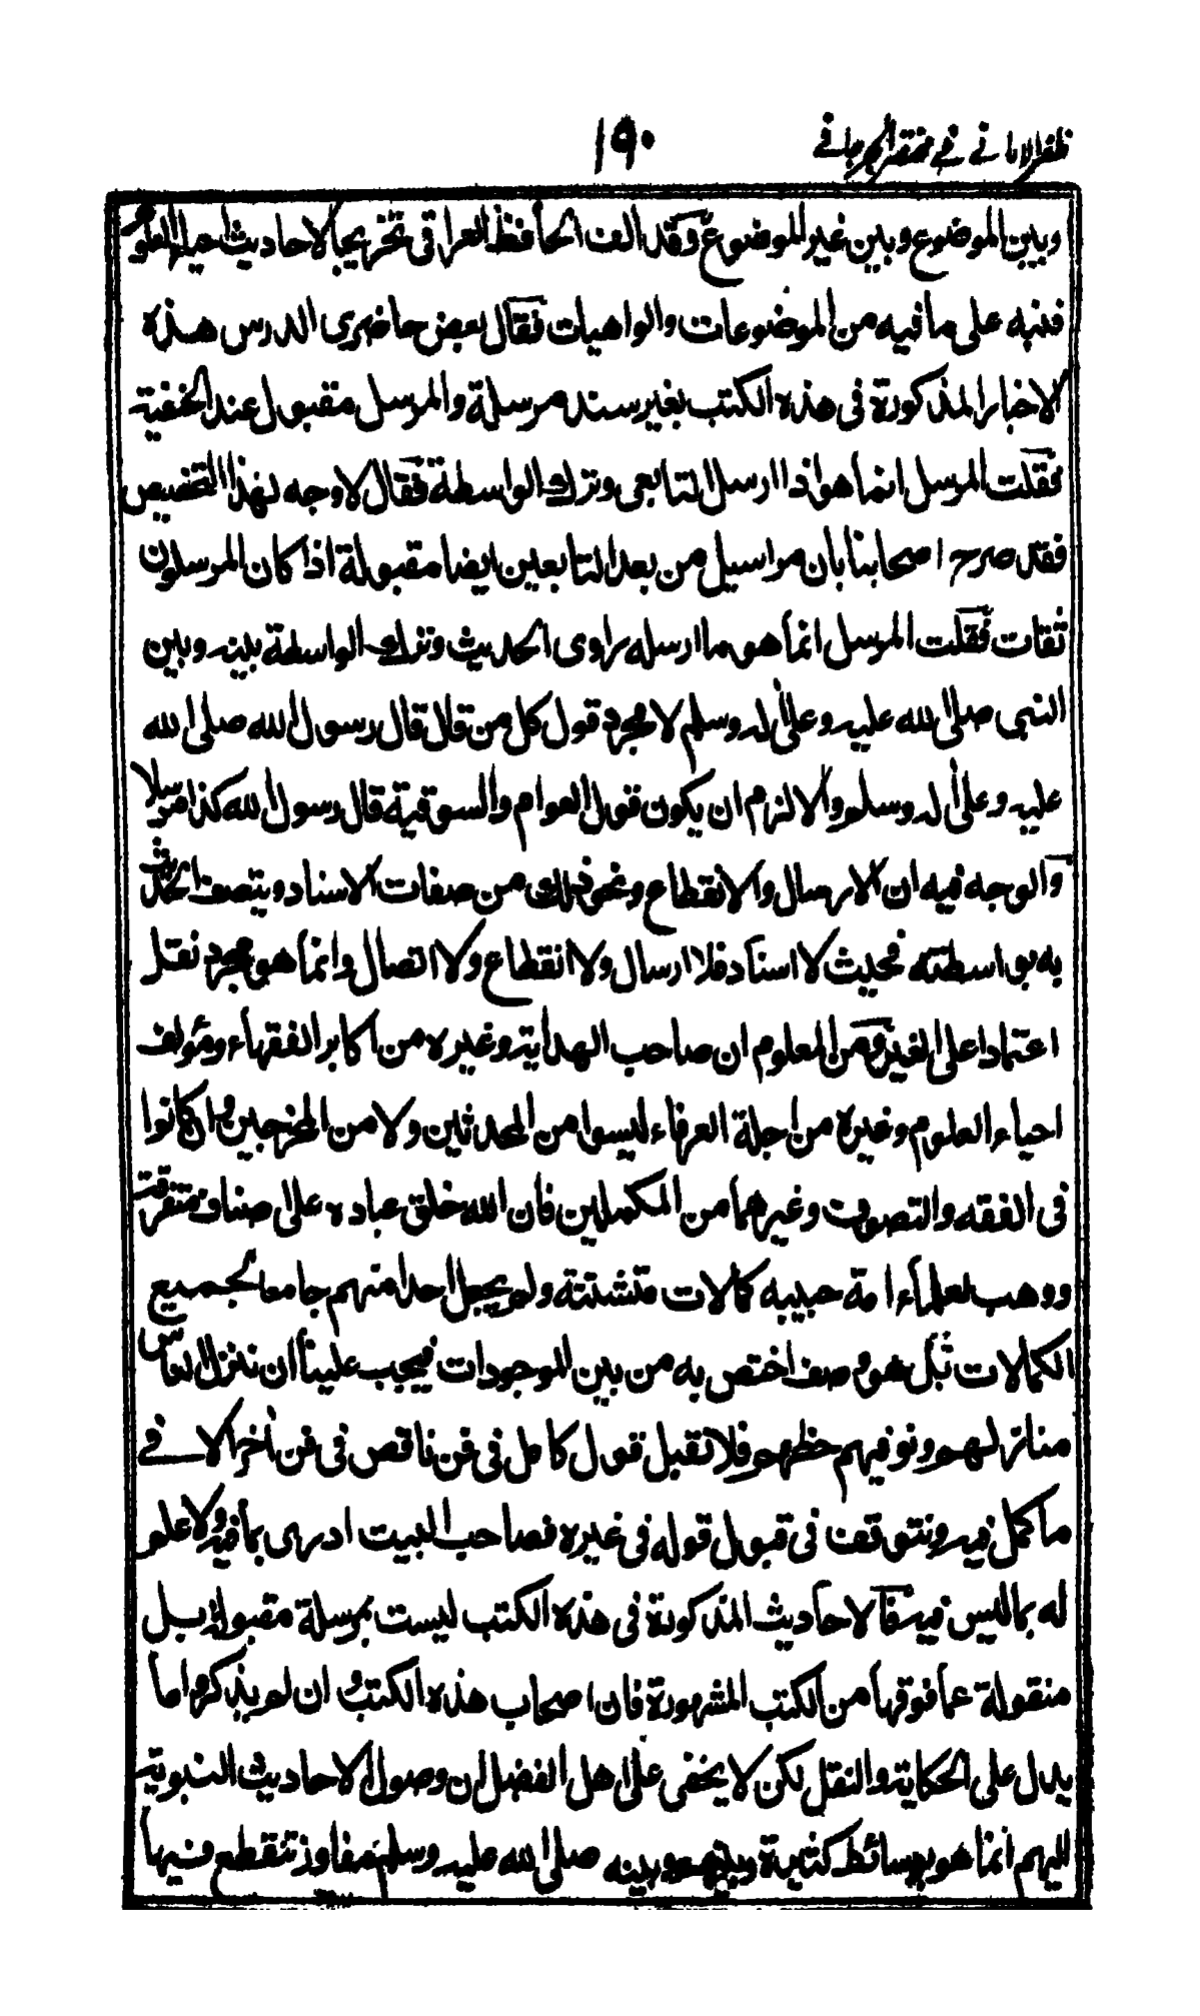 ظفر الامانى فى مختصر الجرجانى
١٩٠
وبين الموضوع وبين غير الموضوع وقد الف الحافظ العراقى تخريجا لاحاديث احياء العلوم
فنبه على ما فيه من الموضوعات والواهيات فقال بعض حاضرى الدرس هذه
الاخبار المذكورة فى هذه الكتب بغير سند مرسلة والمرسل مقبول عند الحنفية
فقلت المرسل انما هو اذا ارسل التابعى وترك الواسطة فقال لا وجه لهذا التخصيص
فقد صرح اصحابنا بان مراسيل من بعد التابعين ايضا مقبولة اذا كان المرسلون
ثقات فقلت المرسل انما هو ما ارسله راوى الحديث وترك الواسطة بينه وبين
النبى صلى الله عليه وعلى اله وسلم لا مجرد قول كل من قال قال رسول الله صلى الله
عليه وعلى اله وسلم والا لزم ان يكون قول العوام والسوقية قال رسول الله كذا مرسلا
والوجه فيه ان الارسال والانقطاع ونحو ذلك من صفات الاسناد ويتصف الحديث
به بواسطته فحيث لا اسناد فلا ارسال ولا انقطاع ولا اتصال وانما هو مجرد نقل
اعتمادا على الغير ومن المعلوم ان صاحب الهداية وغيره من اكابر الفقهاء ومؤلف
احياء العلوم وغيره من اجلة العرفاء ليسوا من المحدثين ولا من المخرجين وان كانوا
فى الفقه والتصوف وغيرهما من المكملين فان الله خلق عباده على اصناف متفرقة
ووهب لعلماء امة حبيبه كمالات متشتتة ولم يجعل احدا منهم جامعا لجميع
الكمالات بل هو وصف اختص به من بين الموجودات فيجب علينا ان ننزل الناس
منازلهم ونوفيهم حظهم فلا نقبل قول كامل فى فن ناقص فى فن اخر الا فى
ما كمل فيه ونتوقف فى قبول قوله فى غيره فصاحب البيت ادرى بما فيه ولا علم
له بما ليس فيه فالاحاديث المذكورة فى هذه الكتب ليست بمرسلة مقبولة بل
منقولة عما فوقها من الكتب المشهورة فان اصحاب هذه الكتب وان لم يذكروا ما
يدل على الحكاية والنقل لكن لا يخفى على اهل الفضل ان وصول الاحاديث النبوية
اليهم انما هو بوسائط كثيرة وبينهم وبينه صلى الله عليه وسلم مفاوز تنقطع فيها